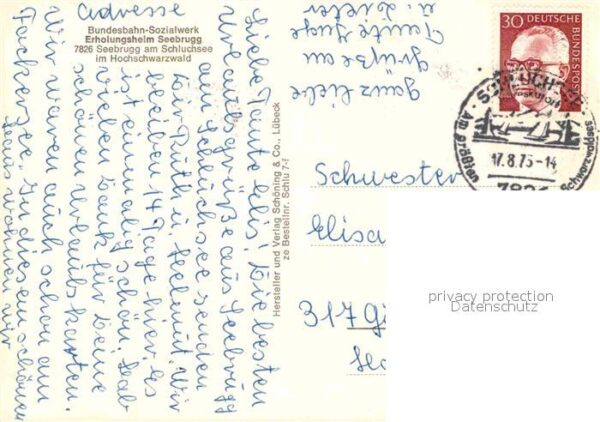 adresse
Bundesbahn-Sozialwerk
Erholungsheim Seebrugg
7826 Seebrugg am Schluchsee
im Hochschwarzwald
Liebe Tante Elis! Die besten
Urlaubsgrüße aus Seebrugg
am Schluchsee senden
Dir Ruth u. Helmut. Wir
bleiben 14 Tage hier, es
ist einmalig schön. Hab
vielen Dank für Deine
lieben Urlaubskarten.
Wir waren auch schon am
In diesem schönen
Haus wohnen wir
Ganz liebe
Grüße an
Tante
u. Dieter
Hersteller und Verlag Schöning & Co., Lübeck
ze Bestellnr. Schlu 7-f
30 DEUTSCHE
BUNDESPOST
SCHLUCHSEE
Am größten
Schwarzwaldsee
17.8.73-14
7826
Schwester
Elisa
317 Gi
privacy protection
Datenschutz